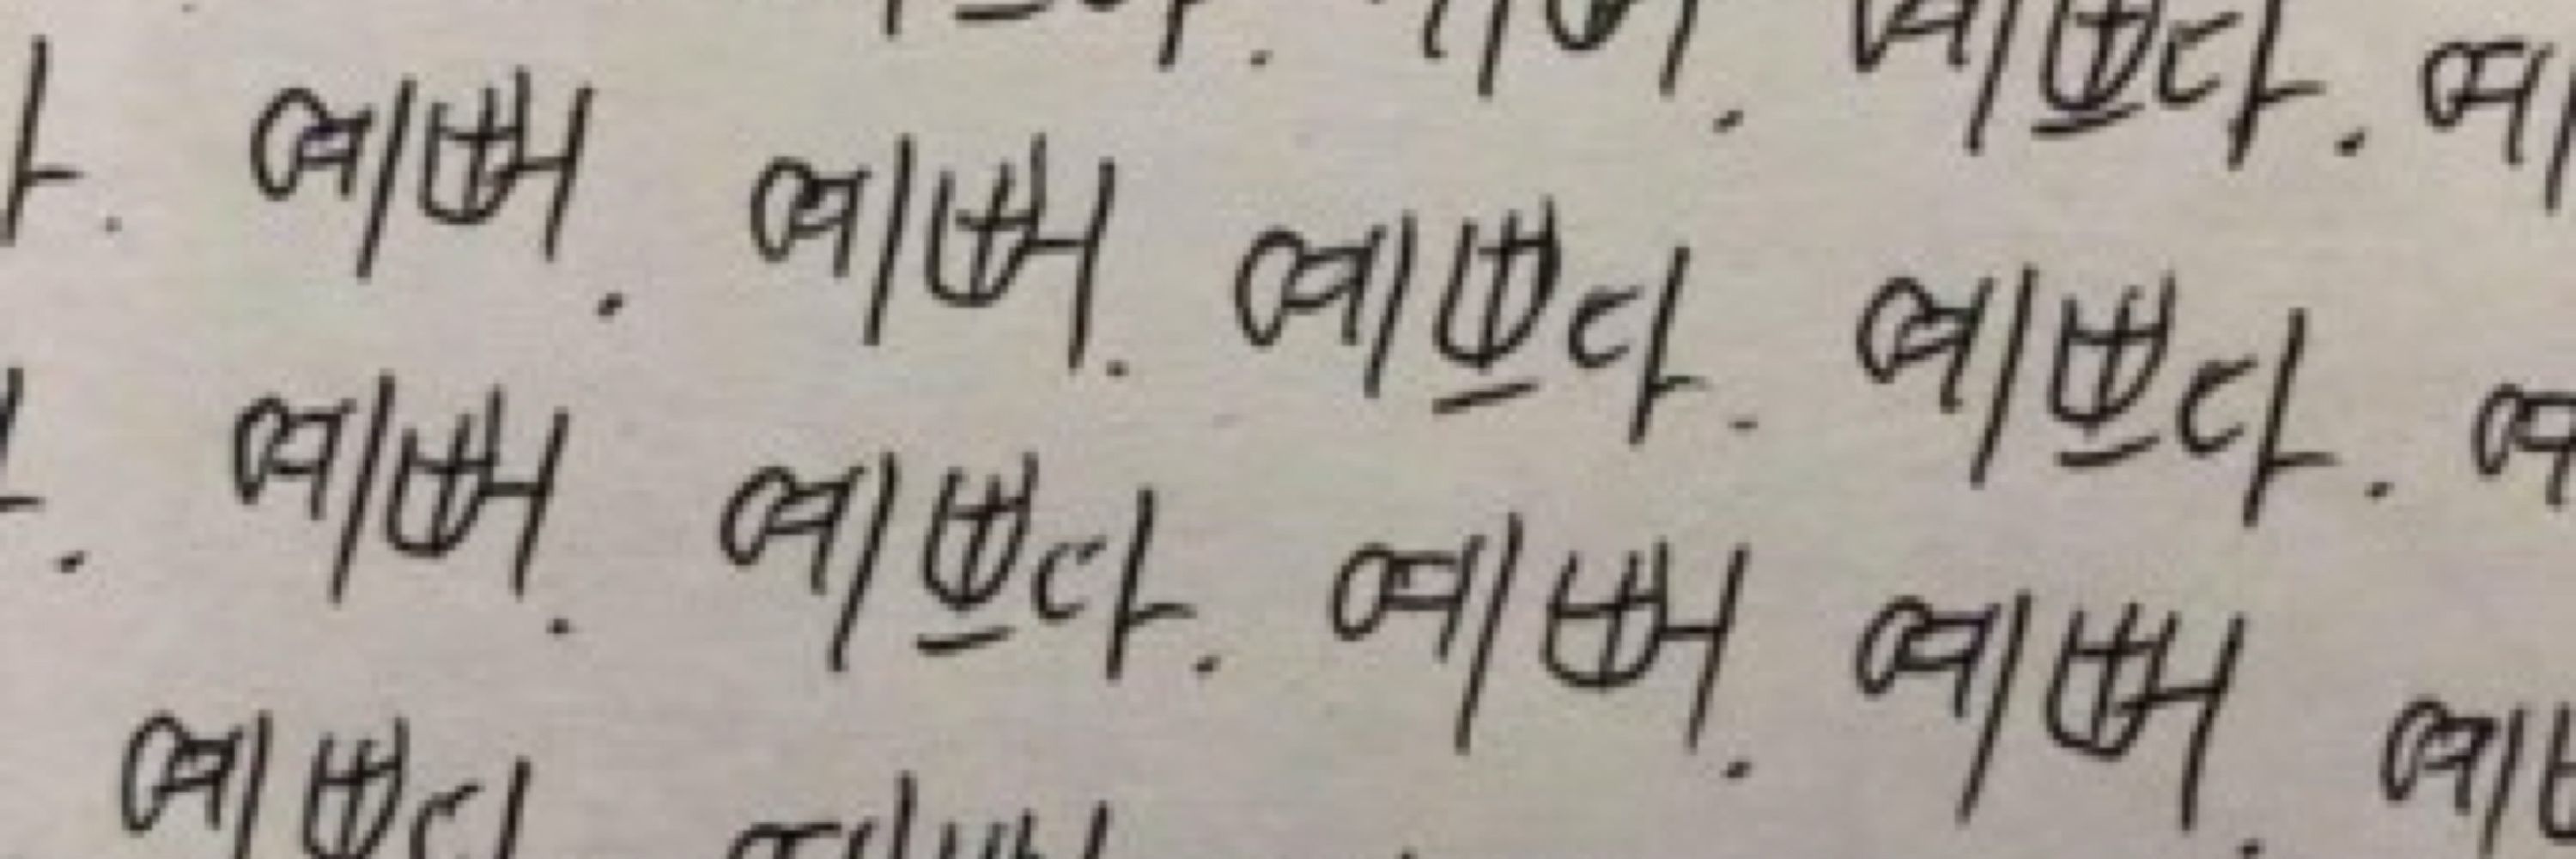 예뻐. 예쁘다. 예
예뻐. 예뻐. 예쁘다. 예쁘다.
예뻐. 예쁘다. 예뻐. 예뻐.
예쁘다